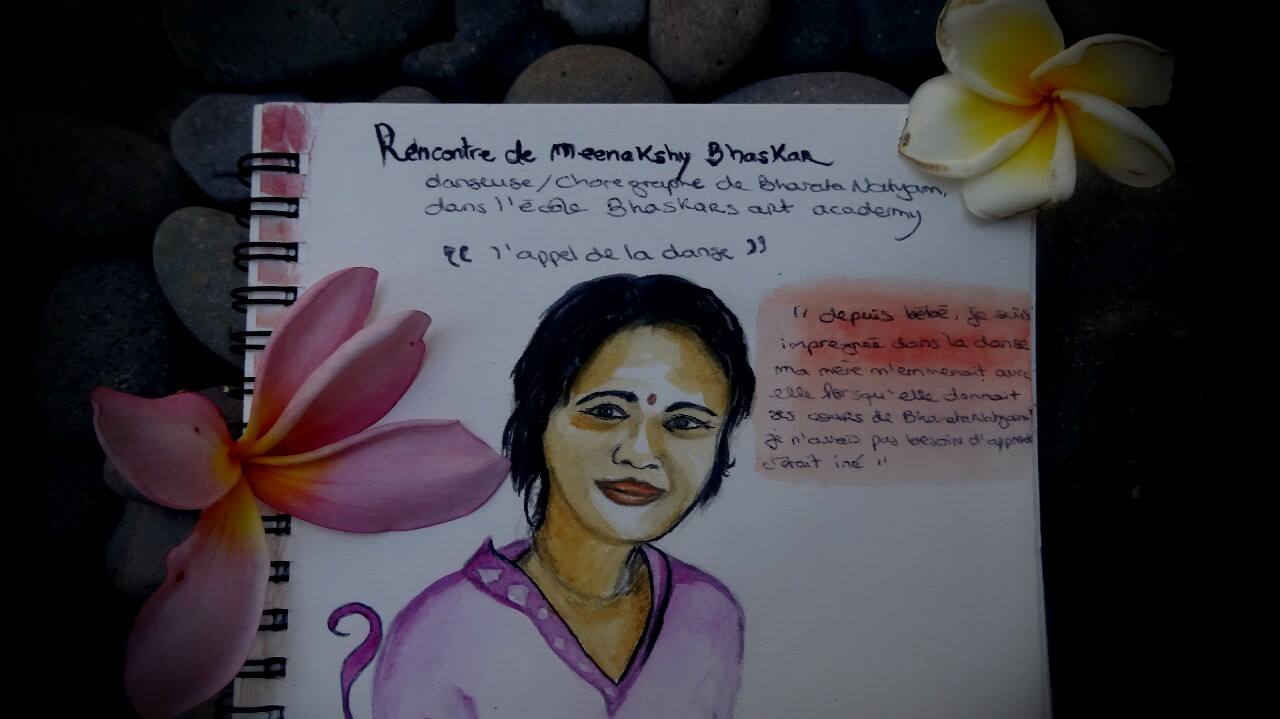 Rencontre de Meenakshy Bhaskar
danseuse/choregraphe de Bharata Natyam,
dans l'école Bhaskars art academy
“ l'appel de la danse ”
“ depuis bébé, je suis
impregnée dans la danse
ma mère m'emmenait avec
elle lorsqu'elle donnait
ses cours de Bharata Natyam
je n'avais pas besoin d'apprendre
c'était iné ”